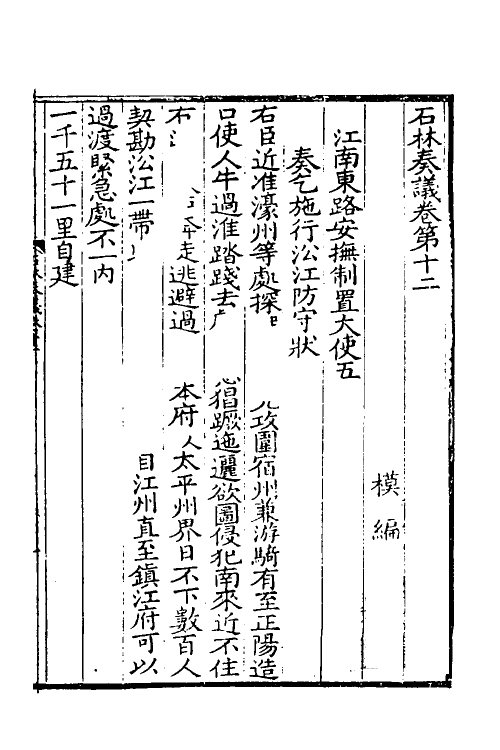 石林奏議卷第十二
模編
江南東路安撫制置大使五
奏乞施行㳂江防守狀
右臣近准濠州等處探 攻圍宿州兼游騎有至正陽造
口使人牛過淮踏踐去 猖蹶迤邐欲圖侵犯南來近不住
右 走逃避過 本府 太平州界日不下數百人
契勘㳂江一帶 自江州直至鎮江府可以
過渡緊急處不一内
一千五十一里自建